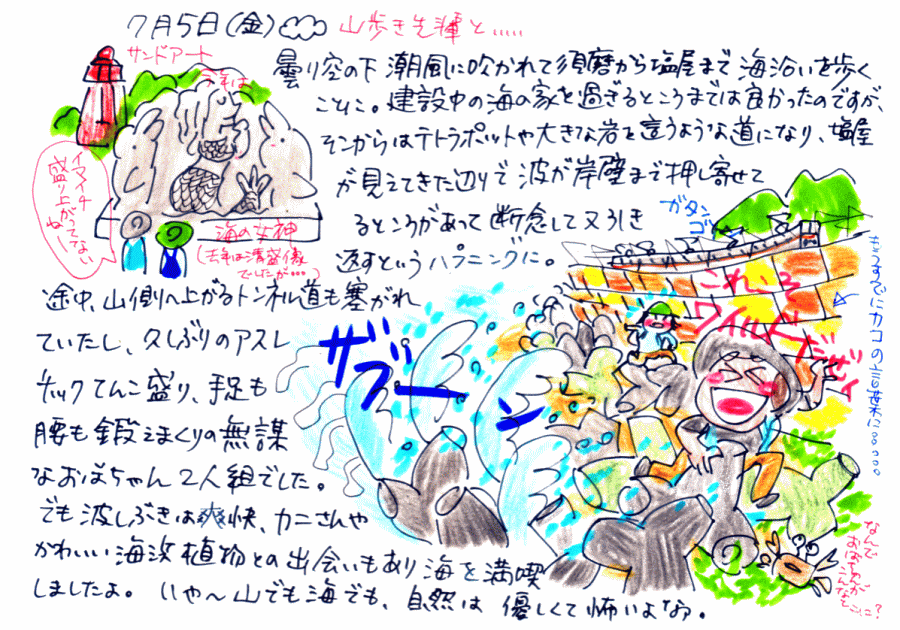 7月5日(金) 山歩き先輩と.....
サンドアート
今年は
曇り空の下 潮風に吹かれて須磨から塩屋まで 海沿いを歩く
ことに。建設中の海の家を過ぎるところまでは良かったのですが、
そこからはテトラポットや大きな岩を這うような道になり、塩屋
が見えてきた辺りで波が岸壁まで押し寄せて
るところがあって断念して又引き
返すというハプニングに。
イマイチ
盛り上がってない
ね〜
海の女神
(去年は清盛像
でしたが…)
途中、山側へ上がるトンネル道も塞がれ
ていたし、久しぶりのアスレ
チックてんこ盛り、手足も
腰も鍛えまくりの無謀
なおばちゃん2人組でした。
でも波しぶきは爽快、カニさんや
かわいい海浜植物との出会いもあり海を満喫
しましたよ。いや〜山でも海でも、自然は 優しくて怖いよなぁ。
ガタン
ゴー
これぃそ
ワイルドだゼイ
もうすでにカコの言葉に。。。。
ザブーン
なんで
おばちゃんが
こんな
とこに?